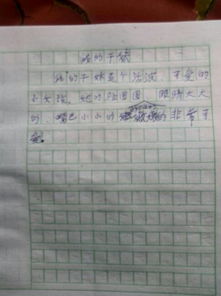 我的干妹
我的干妹是个活泼、可爱的
小女孩。她的脸圆圆、眼睛大大
的、嘴巴小小的 非常可
爱。